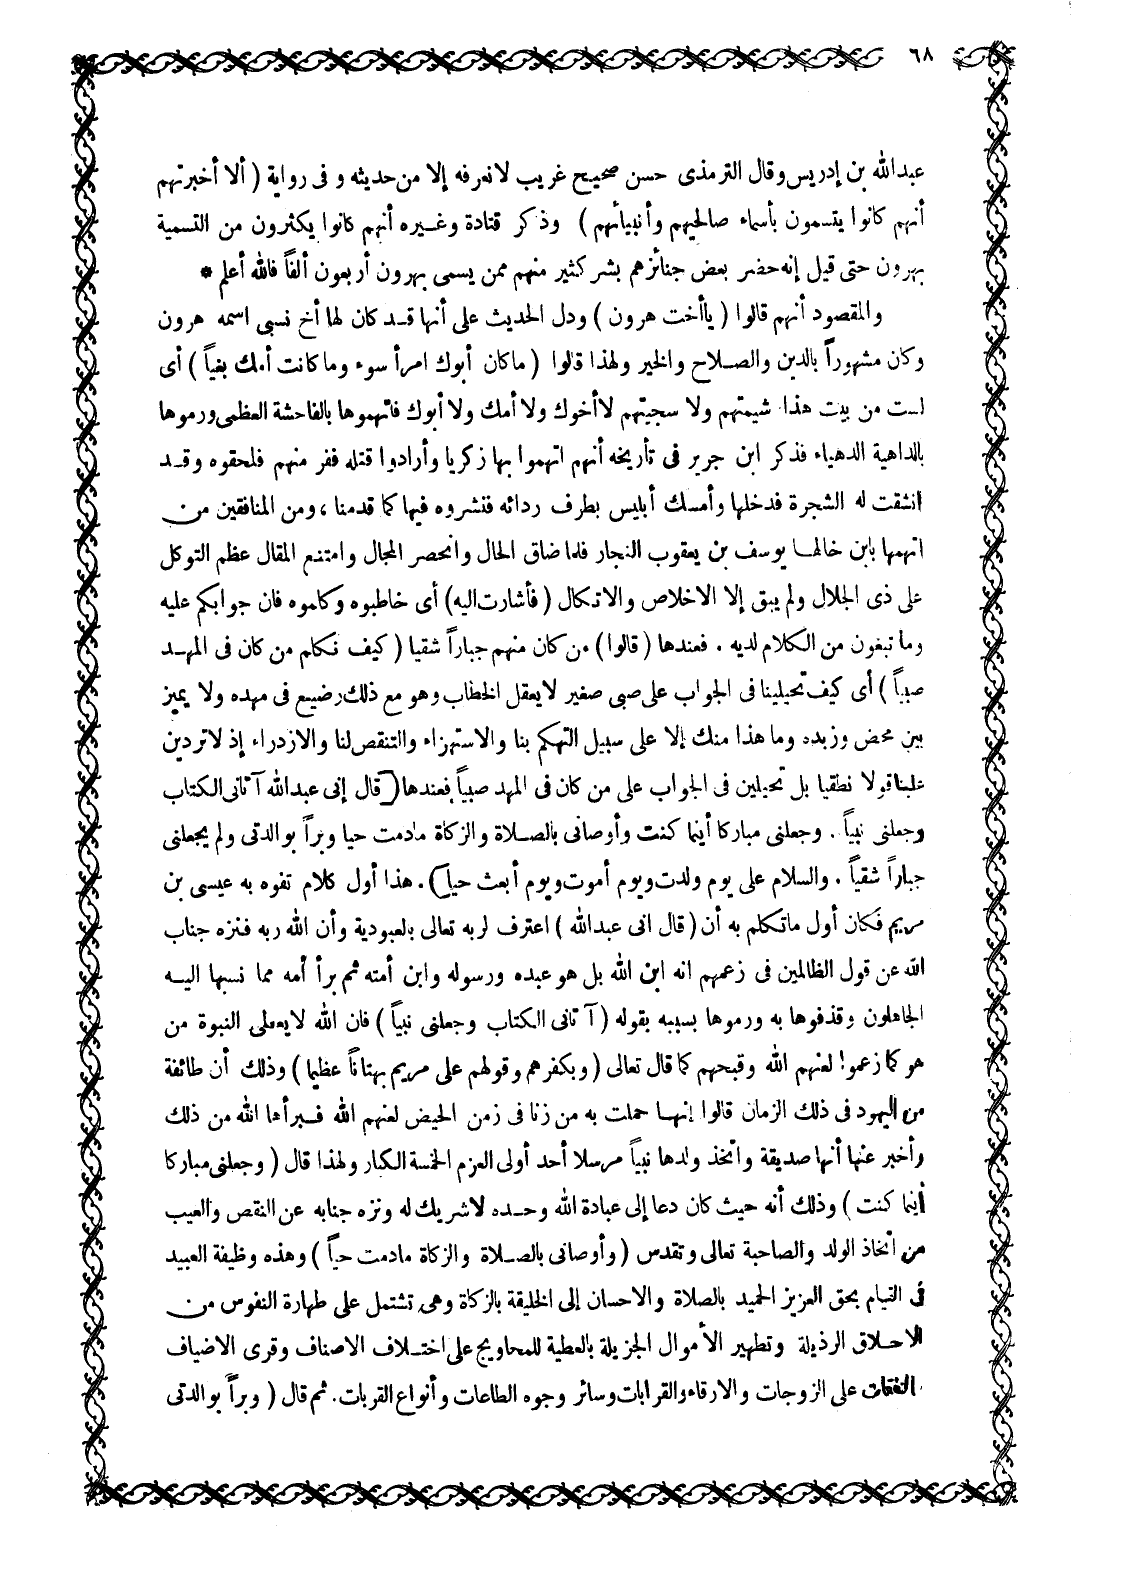 ٦٨
عبدالله بن إدريس وقال الترمذى حسن صحيح غريب لانعرفه إلا من حديثه و فى رواية ( ألا أخبرتهم
أنهم كانوا يتسمون بأسماء صالحيهم وأنبيائهم ) وذكر قتادة وغيره أنهم كانوا يكثرون من التسمية
بهرون حتى قيل إنه حضر بعض جنائزهم بشر كثير منهم ممن يسمى بهرون أربعون ألفاً فالله أعلم *
والمقصود أنهم قالوا ( ياأخت هرون ) ودل الحديث على أنها قد كان لها أخ نسبى اسمه هرون
وكان مشهوراً بالدين والصلاح والخير ولهذا قالوا ( ماكان أبوك امرأ سوء وماكانت أمك بغياً ) أى
لست من بيت هذا شيمتهم ولا سجيتهم لاأخوك ولا أمك ولا أبوك فاتهموها بالفاحشة العظمى ورموها
بالداهية الدهياء فذكر ابن جرير فى تأريخه أنهم اتهموا بها زكريا وأرادوا قتله ففر منهم فلحقوه وقد
انشقت له الشجرة فدخلها وأمسك أبليس بطرف ردائه فنشروه فيها كما قدمنا ، ومن المنافقين من
اتهمها بابن خالها يوسف بن يعقوب النجار فلما ضاق الحال وانحصر المجال وامتنع المقال عظم التوكل
على ذى الجلال ولم يبق إلا الاخلاص والاتكال ( فأشارت اليه ) أى خاطبوه وكلموه فان جوابكم عليه
وما تبغون من الكلام لديه . فعندها ( قالوا ) من كان منهم جباراً شقيا ( كيف نكلم من كان فى المهد
صبياً ) أى كيف تحيلينا فى الجواب على صبى صغير لا يعقل الخطاب وهو مع ذلك رضيع فى مهده ولا يميز
بين محض وزبده وما هذا منك إلا على سبيل التهكم بنا والاستهزاء والتنقص لنا والازدراء إذ لاتردين
علينا قولا نطقيا بل تحيلين فى الجواب على من كان فى المهد صبياً فعندها ( قال إنى عبدالله آتانى الكتاب
وجعلنى نبياً . وجعلنى مباركا أينما كنت وأوصانى بالصلاة والزكاة مادمت حيا وبراً بوالدتى ولم يجعلنى
جباراً شقياً . والسلام على يوم ولدت ويوم أموت ويوم أبعث حيا ) . هذا أول كلام تفوه به عيسى بن
مريم فكان أول ماتكلم به أن ( قال انى عبدالله ) اعترف لربه تعالى بالعبودية وأن الله ربه فنزه جناب
الله عن قول الظالمين فى زعمهم انه ابن الله بل هو عبده ورسوله وابن أمته ثم برأ أمه مما نسبها اليه
الجاهلون وقذفوها به ورموها بسببه بقوله ( آتانى الكتاب وجعلنى نبياً ) فان الله لايعطى النبوة من
هو كما زعموا لعنهم الله وقبحهم كما قال تعالى ( وبكفرهم وقولهم على مريم بهتاناً عظيما ) وذلك أن طائفة
من اليهود فى ذلك الزمان قالوا إنها حملت به من زنا فى زمن الحيض لعنهم الله فبرأها الله من ذلك
وأخبر عنها أنها صديقة واتخذ ولدها نبياً مرسلا أحد أولى العزم الخمسة الكبار ولهذا قال ( وجعلنى مباركا
أينما كنت ) وذلك أنه حيث كان دعا إلى عبادة الله وحده لاشريك له ونزه جنابه عن النقص والعيب
من اتخاذ الولد والصاحبة تعالى وتقدس ( وأوصانى بالصلاة والزكاة مادمت حياً ) وهذه وظيفة العبيد
فى القيام بحق العزيز الحميد بالصلاة والاحسان إلى الخليقة بالزكاة وهى تشتمل على طهارة النفوس من
الاخلاق الرذيلة وتطهير الأموال الجزيلة بالعطية للمحاويج على اختلاف الاصناف وقرى الاضياف
النفقات على الزوجات والارقاء والقرابات وسائر وجوه الطاعات وأنواع القربات . ثم قال ( وبراً بوالدتى